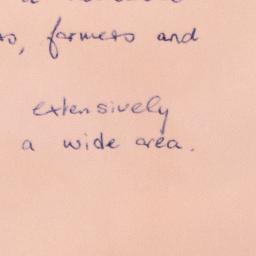 farmers and
extensively
a wide area.